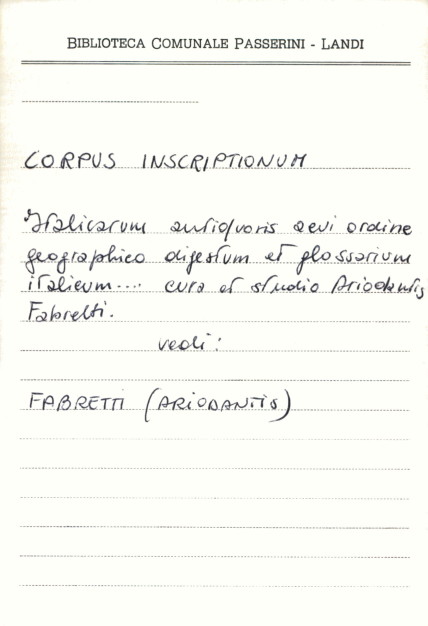 BIBLIOTECA COMUNALE PASSERINI - LANDI
CORPUS INSCRIPTIONUM
Italicarum antiquoris aevi ordine
geographico digestum et glossarium
italicum.... cura et studio Ariodantis
Fabretti.
vedi:
FABRETTI (ARIODANTIS)